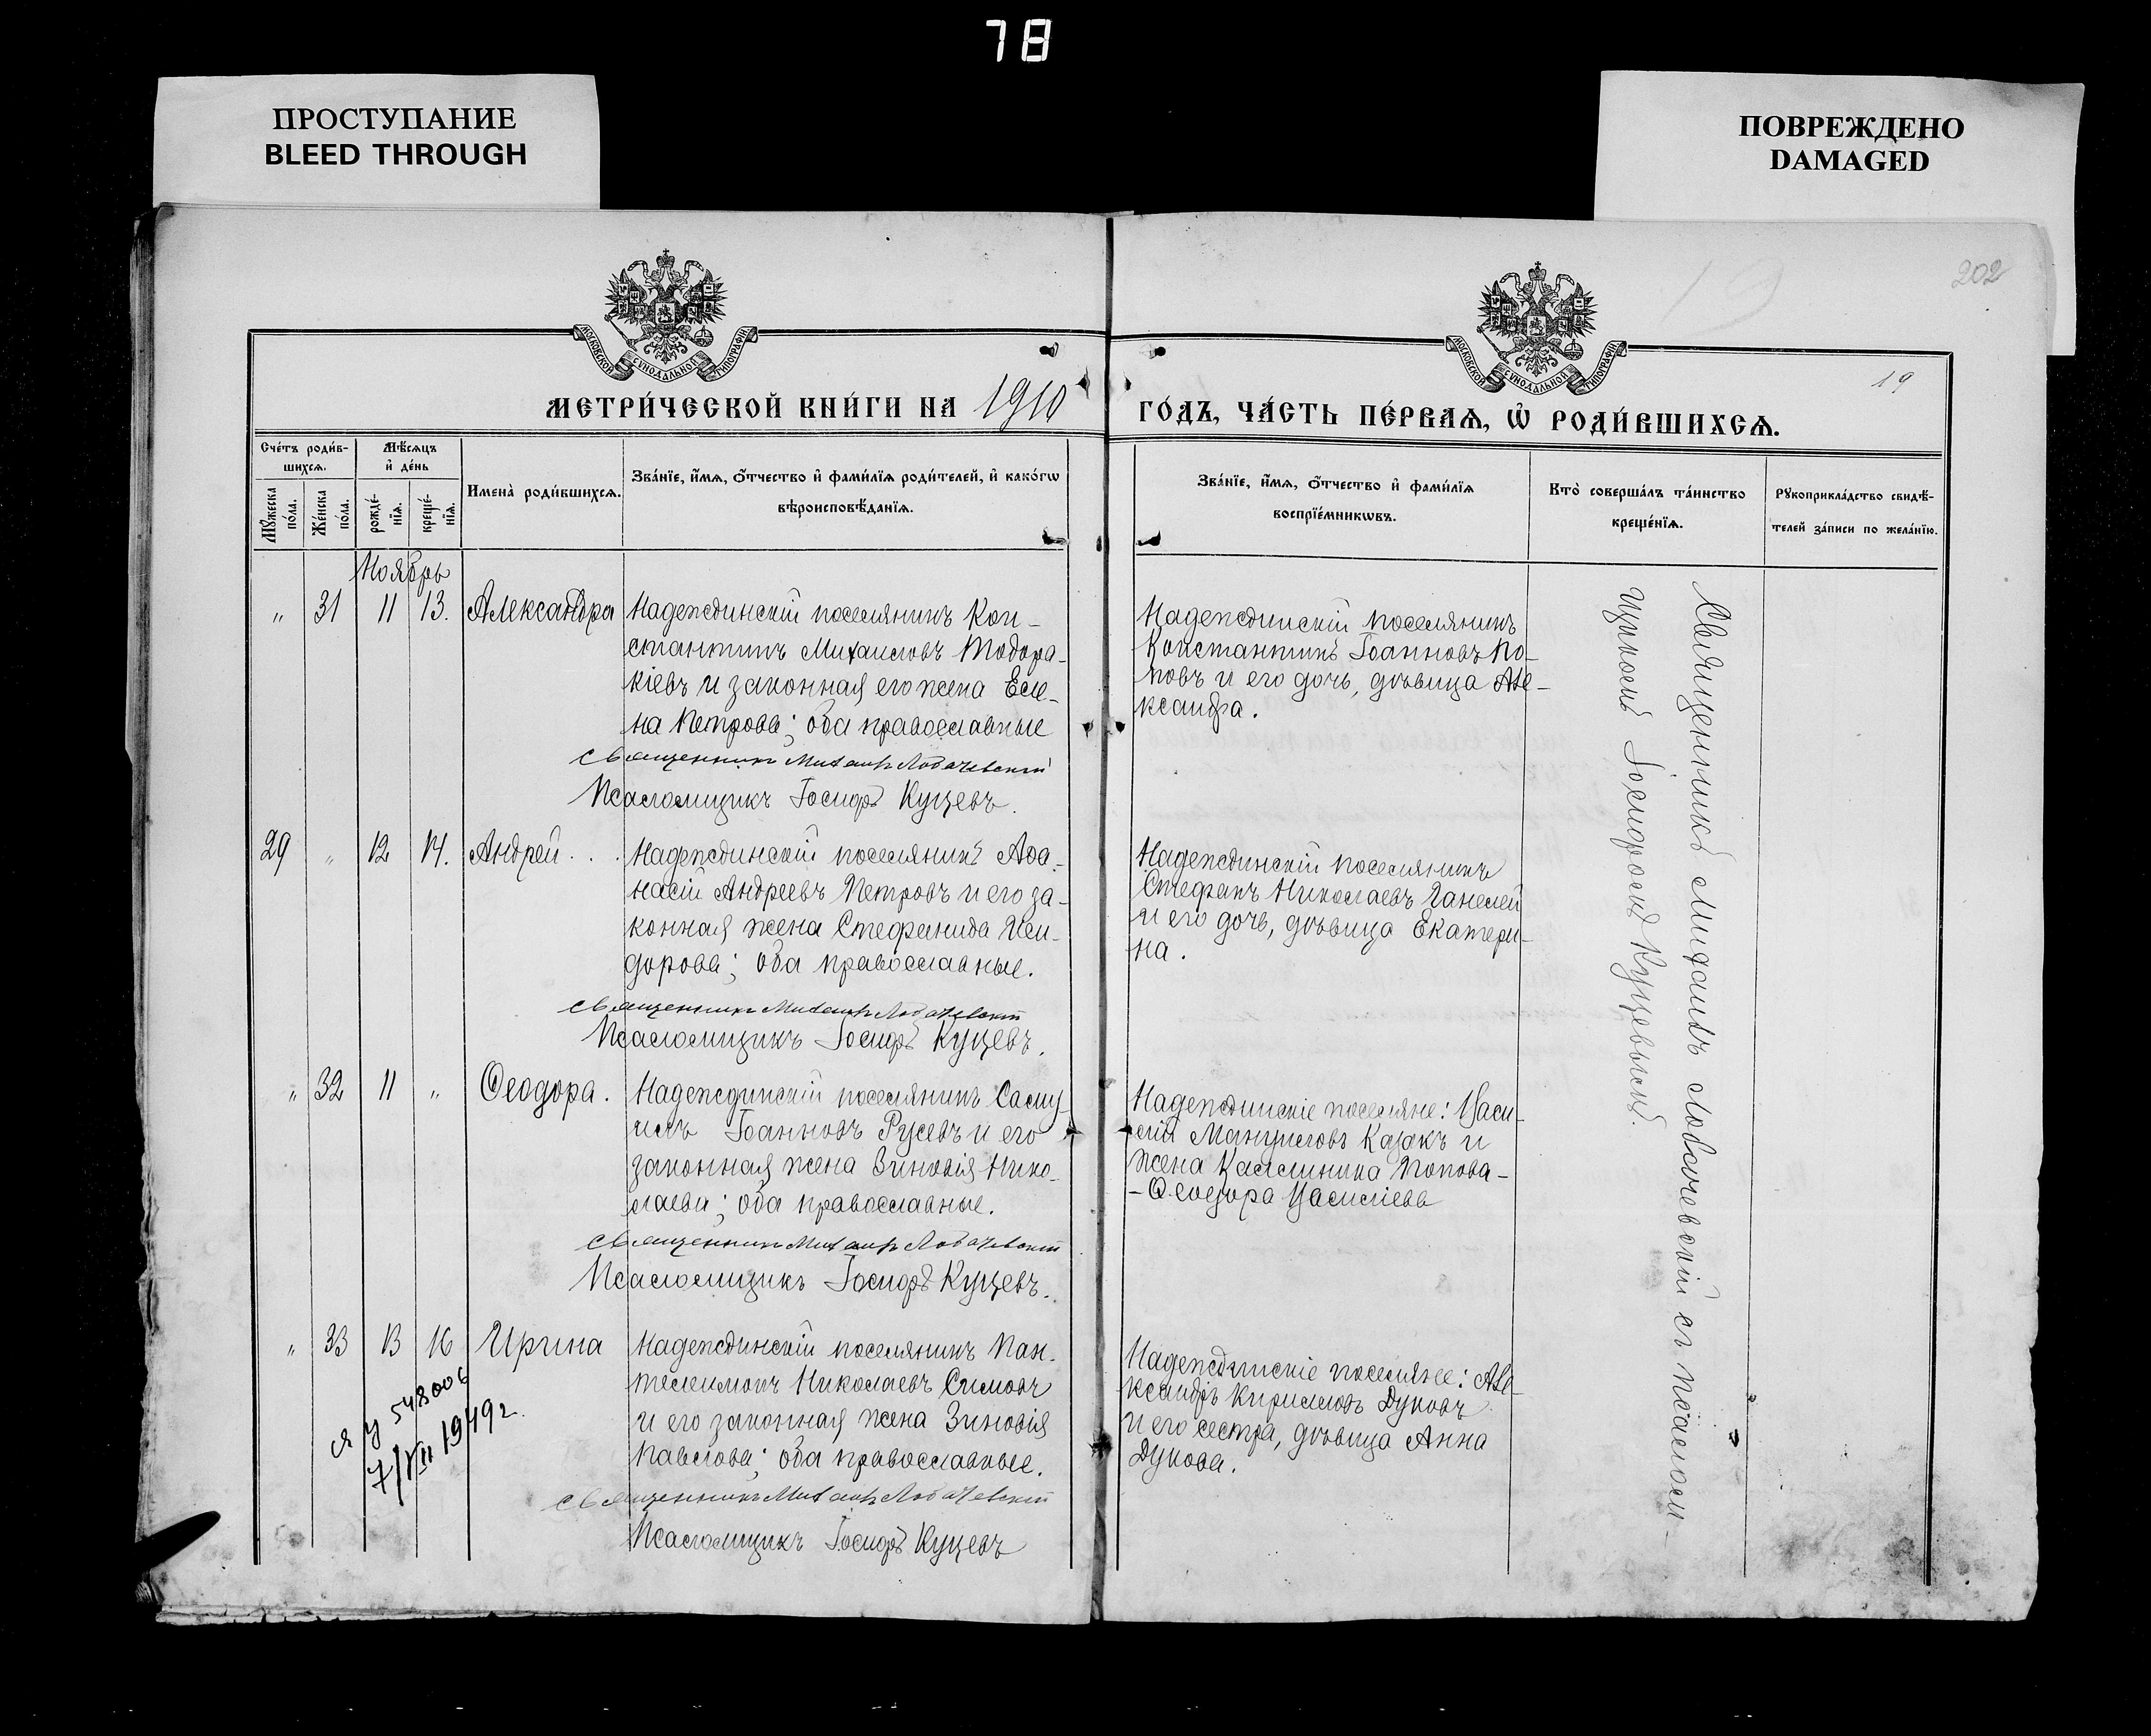 78
ПРОСТУПАНИЕ
BLEED THROUGH
ПОВРЕЖДЕНО
DAMAGED
202
19
МОСКОВСКОЙ СѴНОДАЛЬНОЙ ТИПОГРАФІИ
МОСКОВСКОЙ СѴНОДАЛЬНОЙ ТИПОГРАФІИ
МЕТРИ́ЧЕСКОЙ КНИ́ГИ НА 1910 ГО́ДЪ, ЧА́СТЬ ПЕ́РВАѦ, Ѡ҆ РОДИ́ВШИХСѦ.
Сче́тъ роди́в-
шихсѧ.
Мꙋ́жеска по́ла.
Же́нска по́ла.
Мѣ́сѧцъ
и҆ де́нь
рожде́-
нїѧ.
креще́-
нїѧ.
Имена̀ роди́вшихсѧ.
Зва́нїе, и҆́мѧ, ѻ҆́тчество и҆ фами́лїѧ роди́телей, и҆ како́гѡ
вѣроисповѣ́данїѧ.
Зва́нїе, и҆́мѧ, ѻ҆́тчество и҆ фами́лїѧ
воспрїе́мникѡвъ.
Кто̀ соверша́лъ та́инство
креще́нїѧ.
Рꙋкоприкла́дство свидѣ́-
телей за́писи по жела́нїю.
Ноябрь
" 31 11 13. Александра
Надеждинскій поселянинъ Кон-
стантинъ Михаиловъ Тодора-
кіевъ и законная его жена Еле-
на Петрова; оба православные
Священникъ Михаилъ Лобачевскій
Псаломщикъ Іосифъ Куцевъ.
Надеждинскій поселянинъ
Константинъ Іоанновъ По-
повъ и его дочь, дѣвица Але-
ксандра.
29 " 12 14. Андрей . . .
Надеждинскій поселянинъ Аѳа-
насій Андреевъ Петровъ и его за-
конная жена Стефанида Иси-
дорова; оба православные.
Священникъ Михаилъ Лобачевскій
Псаломщикъ Іосифъ Куцевъ.
Надеждинскій поселянинъ
Стефанъ Николаевъ Ганелей
и его дочь, дѣвица Екатери-
на.
" 32 11 " Ѳеодора.
Надеждинскій поселянинъ Саму-
илъ Іоанновъ Русевъ и его
законная жена Зиновія Нико-
лаева; оба православные.
Священникъ Михаилъ Лобачевскій
Псаломщикъ Іосифъ Куцевъ.
Надеждинскіе поселяне: Васи-
лій Мануиловъ Казакъ и
жена Каллиника Попова-
-Ѳеодора Василіева
" 33 13 16 Ирина
Надеждинскій поселянинъ Пан-
телеимонъ Николаевъ Симовъ
и его законная жена Зиновія
Павлова; оба православные.
Священникъ Михаилъ Лобачевскій
Псаломщикъ Іосифъ Куцевъ
Надеждинскіе поселяне: Але-
ксандръ Кирилловъ Дуковъ
и его сестра, дѣвица Анна
Дукова.
548006
7/VII 1949г.
Священникъ Михаилъ Лобачевскій съ псалом-
щикомъ Іосифомъ Куцевымъ.